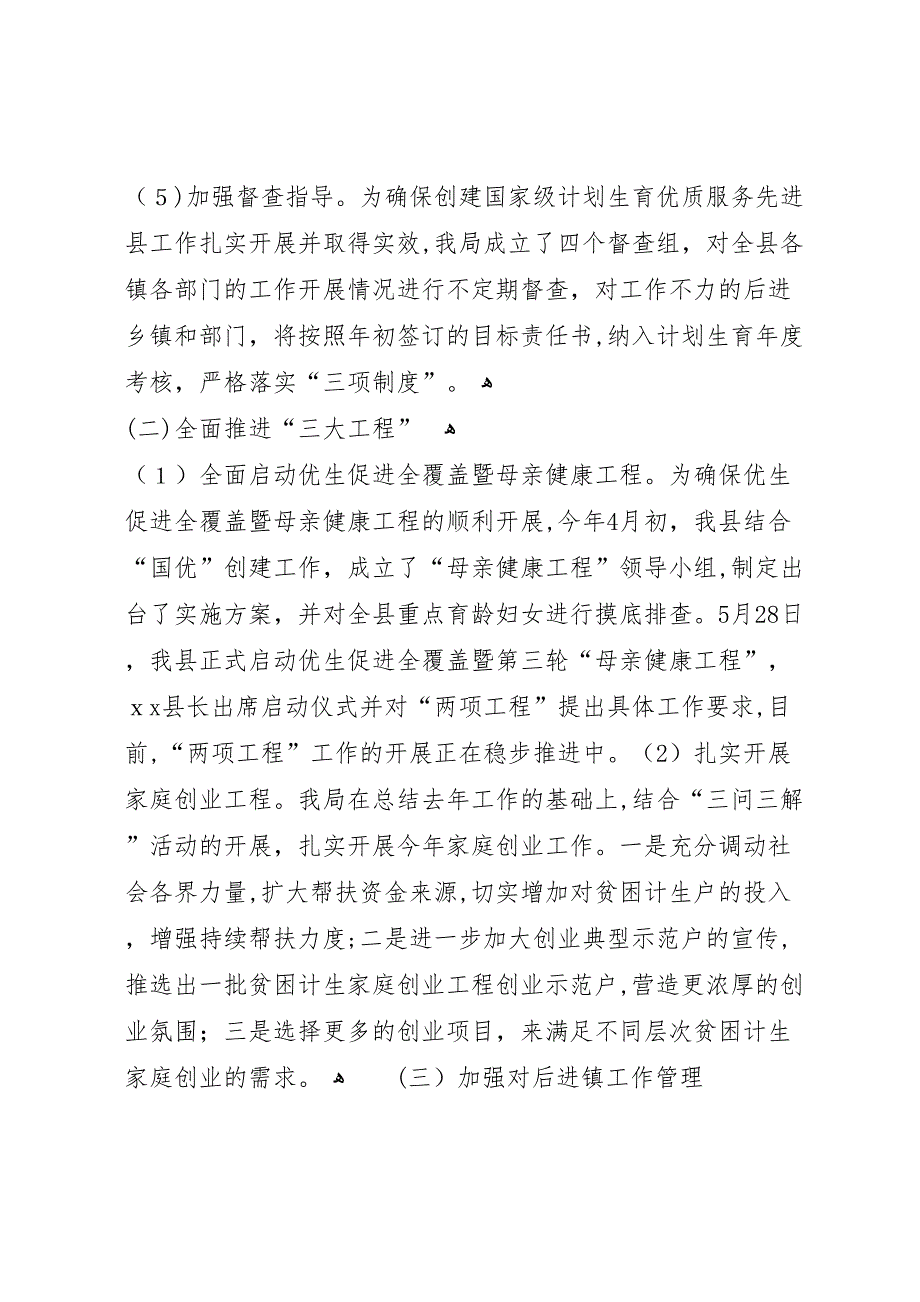 （５)加强督查指导。为确保创建国家级计划生育优质服务先进
县工作扎实开展并取得实效,我局成立了四个督查组，对全县各
镇各部门的工作开展情况进行不定期督查，对工作不力的后进
乡镇和部门，将按照年初签订的目标责任书,纳入计划生育年度
考核，严格落实“三项制度”。 ﻫ
(二)全面推进“三大工程” ﻫ
（１）全面启动优生促进全覆盖暨母亲健康工程。为确保优生
促进全覆盖暨母亲健康工程的顺利开展,今年4月初，我县结合
“国优”创建工作，成立了“母亲健康工程”领导小组,制定出
台了实施方案，并对全县重点育龄妇女进行摸底排查。5月28日
，我县正式启动优生促进全覆盖暨第三轮“母亲健康工程”，
ｘx县长出席启动仪式并对“两项工程”提出具体工作要求,目
前,“两项工程”工作的开展正在稳步推进中。（2）扎实开展
家庭创业工程。我局在总结去年工作的基础上,结合“三问三解
”活动的开展，扎实开展今年家庭创业工作。一是充分调动社
会各界力量,扩大帮扶资金来源,切实增加对贫困计生户的投入
，增强持续帮扶力度;二是进一步加大创业典型示范户的宣传,
推选出一批贫困计生家庭创业工程创业示范户,营造更浓厚的创
业氛围；三是选择更多的创业项目，来满足不同层次贫困计生
家庭创业的需求。 ﻫ (三）加强对后进镇工作管理